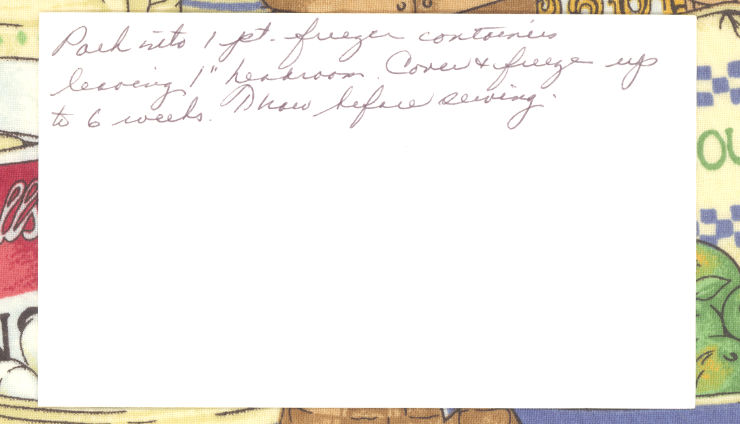 Pack into 1 pt. freezer containers
leaving 1" headroom. Cover & freeze up
to 6 weeks. Thaw before serving.
lls
OU